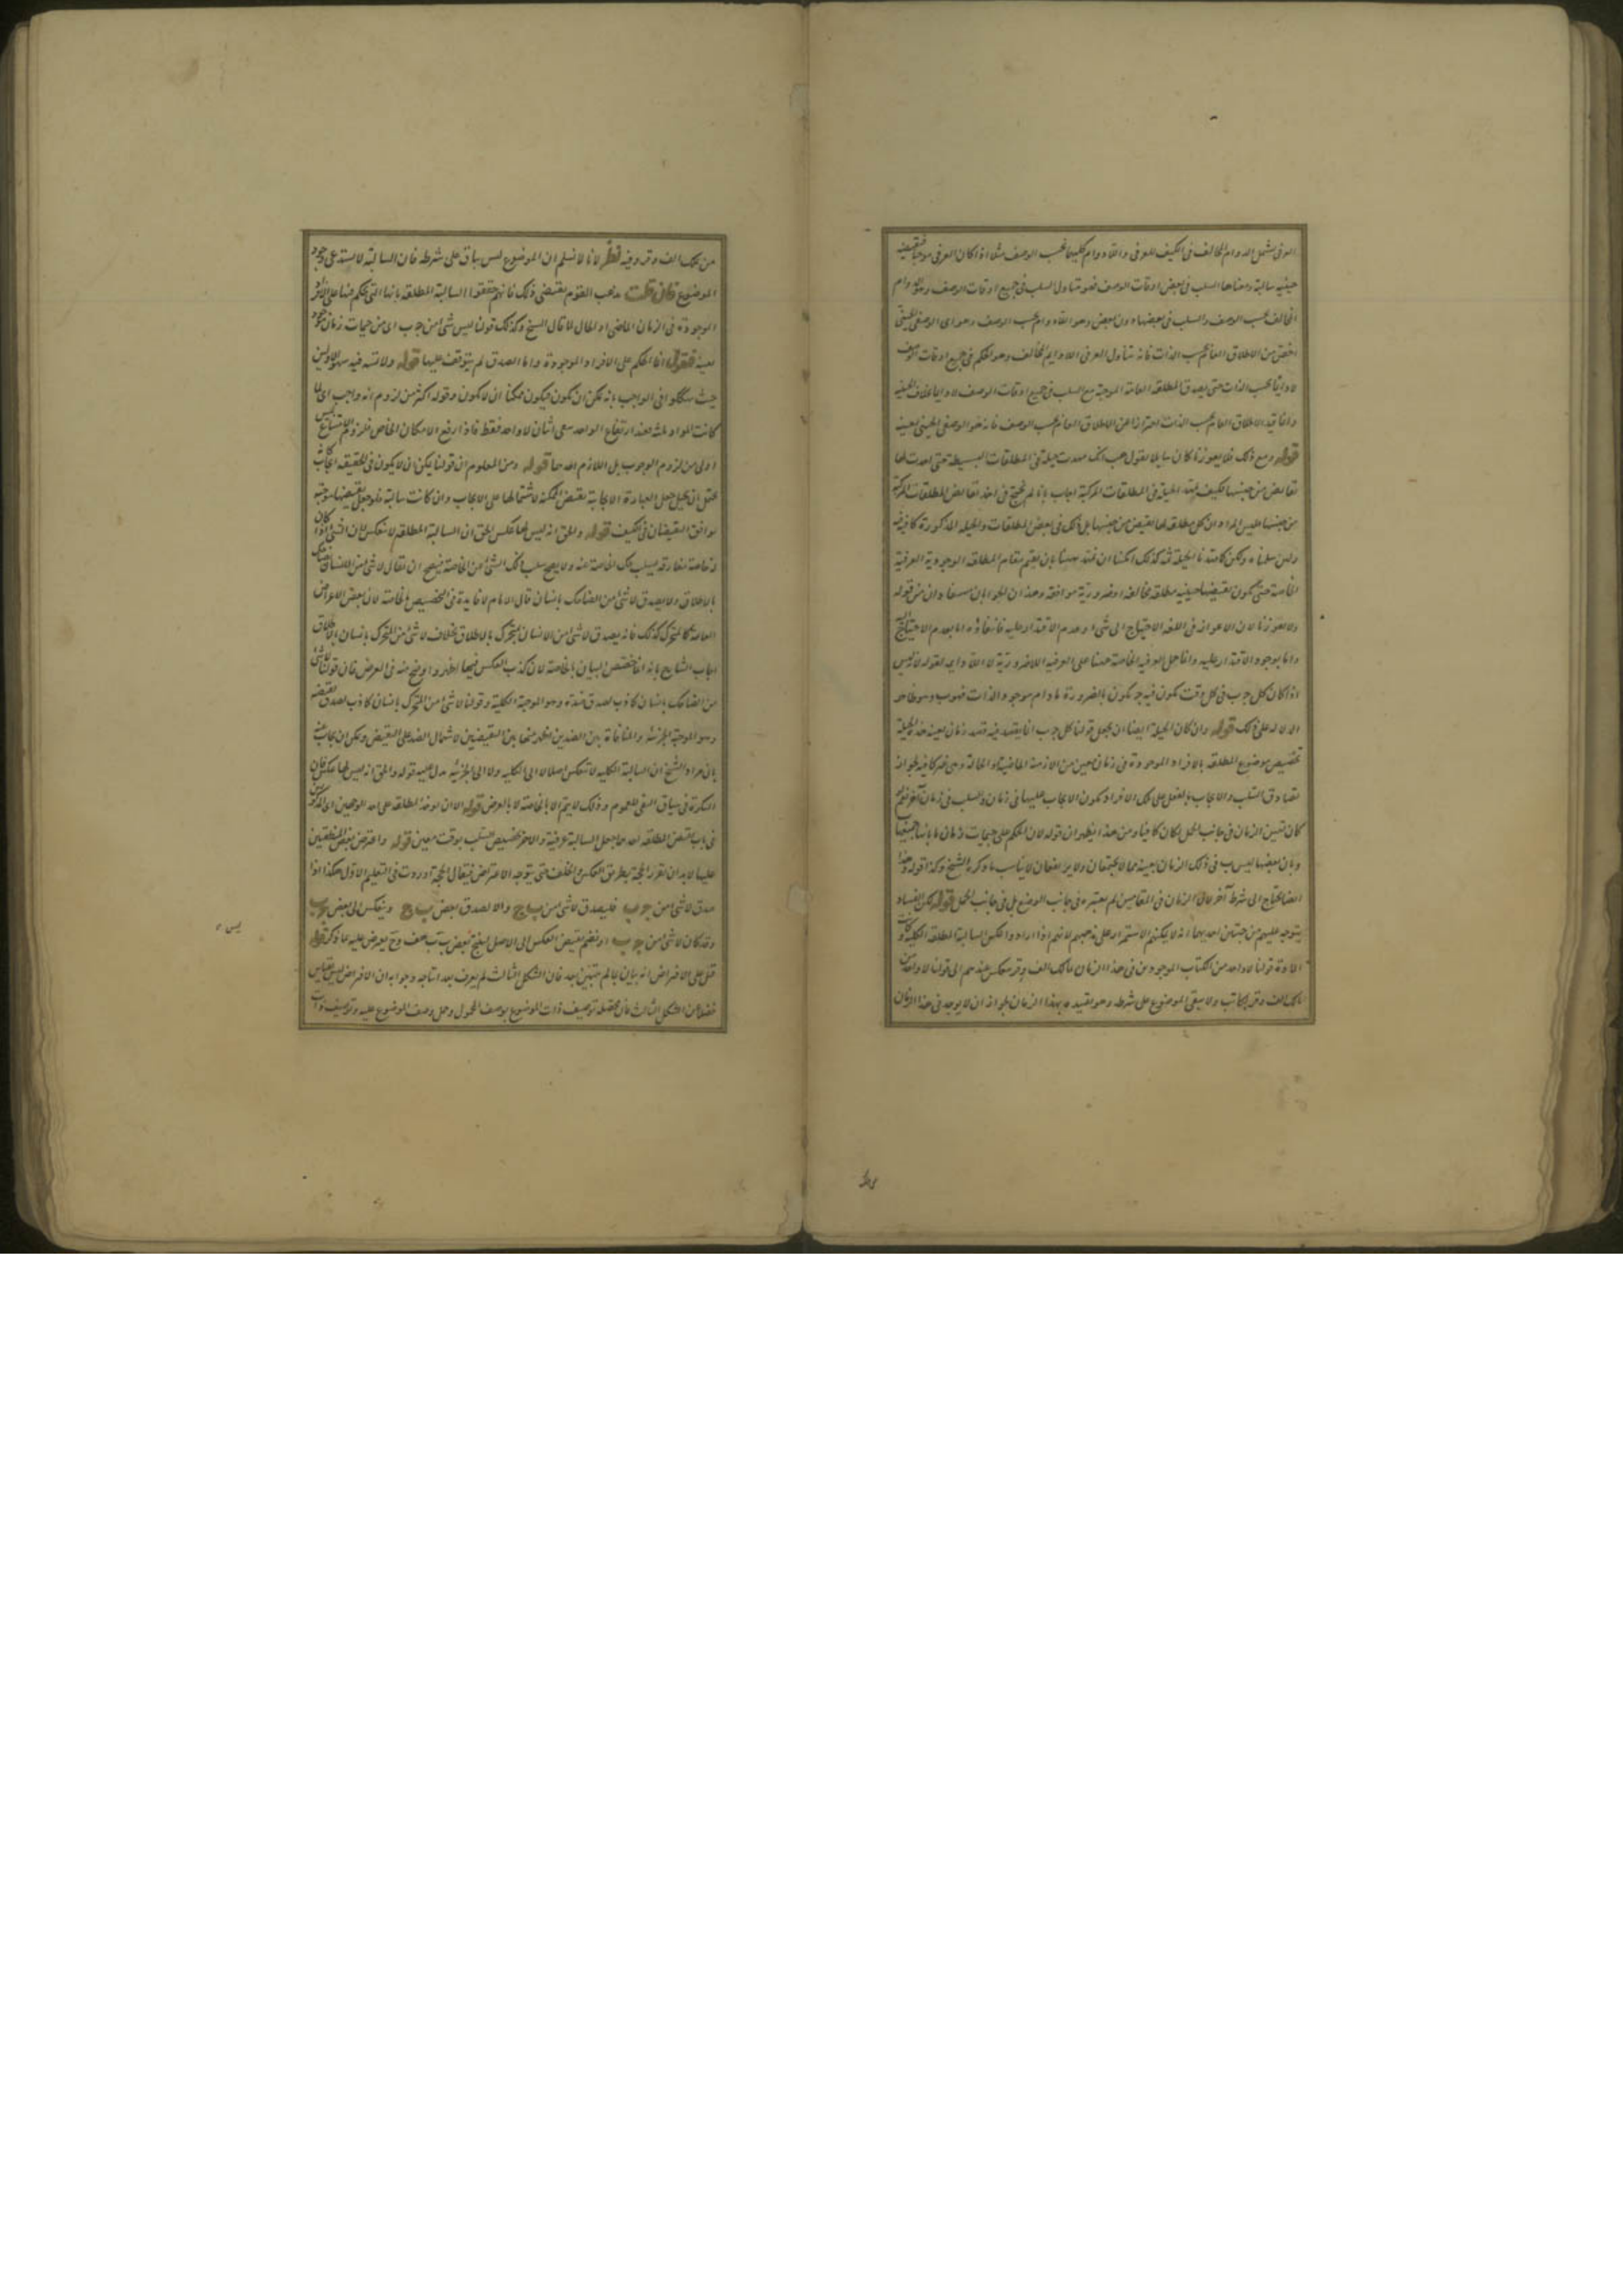 العرفى يشمل الدوام المخالف فى الكيف للعرفى واللادوام كليهما بحسب الوصف مثلا اذا كان العرفى موجبا فنقيضه
حينيه سالبة ومعناها السلب فى بعض اوقات الوصف فهو يتناول السلب فى جميع اوقات الوصف وهو دوام
المخالف بحسب الوصف والسلب فى بعضها دون بعض وهو اللادوام بحسب الوصف وهو اى الوصفى الحينى
اخص من الاطلاق العام بحسب الذات فانه يتناول العرفى اللادايم المخالف وهو الحكم فى جميع اوقات الوصف
لا دايما بحسب الذات حتى يصدق المطلقة العامة الموجبة مع السلب فى جميع اوقات الوصف لا دايما بخلاف الحينيه
وانما قيد الاطلاق العام بحسب الذات احترازا عن الاطلاق العام بحسب الوصف فانه هو الوصفى الحينى بعينه
قوله ومع ذلك فلا يعوزنا كان سايلا يقول هب انك مهدت حيلة فى المطلقات البسيطة حتى اخذت لها
نقايض من جنسها فكيف الحيلة فى المطلقات المركبة اجاب بانا لم نحتج فى اخذ نقايض المطلقات المركبة
من جنسها اذ ليس المراد ان كل مطلقة لها نقيض من جنسها بل ذلك فى بعض المطلقات والحيلة المذكورة كافية فيه
ولئن سلمناه ولكن كما تمت الحيلة ثمه كذلك امكننا ان هيهنا بان نقيم مقام المطلقة الوجودية العرفية
الخاصة حتى يكون نقيضها حينيه مطلقة مخالفة او ضرورية موافقة وهذان الجوابان من قوله
ولا يعوزنا لان الاعواز فى اللغة الاحتياج الى شىء وعدم الاقتدار عليه فانتفاؤه اما بعدم الاحتياج
واما بوجود الاقتدار عليه وانما حمل العرفيه الخاصة هيهنا على العرفيه اللاضرورية لا اللادايمه لقوله ليس
اذا كان كل ج ب فى كل وقت يكون فيه ج يكون بالضرورة ما دام موجود الذات فهو ب وهو ظاهر
الدلالة على ذلك قوله وان كان الحيلة ايضا ان نجعل قولنا كل ج ب انما يقصد فيه قصد زمان بعينه هذه الحيلة
تخصيص موضوع المطلقة بالافراد الموجودة فى زمان معين من الازمنة الماضية او الحالة وهى غير كافيه لجواز
تصادق السلب والايجاب بالفعل على تلك الافراد بكون الايجاب عليها فى زمان والسلب فى زمان آخر نعم
كان تعيين الزمان فى جانب الحمل لكان كافيا ومن هذا يظهر ان قوله لان الحكم على جيمات زمان ما بانها جميعها
وبان بعضها ليس ب فى ذلك الزمان بعينه مما لا يجتمعان ولا يرتفعان لا يناسب ما ذكره الشيخ وكذا قوله وهذا
ايضا يحتاج الى شرط آخر فان الزمان فى المقامين لم يعتبره فى جانب الوضع بل فى جانب الحمل قوله لكن الفساد
يتوجه عليهم من جهتين احديهما انه لا يمكنهم الاستمرار على مذهبهم لانهم اذا ارادوا عكس السالبة المطلقة الكلية كانت
صادقة قولنا لا واحد من الكتاب الموجودين فى هذا الزمان مالك الف وقر عندهم الى قولنا لا واحد من
مالك الف وقر بكاتب ولا يبقى الموضوع على شرطه وهو تقييده بهذا الزمان لجواز ان لا يوجد فى هذا الزمان
من يملك الف وقر وفيه نظر لانا لا نسلم ان الموضوع ليس بباق على شرطه فان السالبة لا يستدعى وجود
الموضوع فان قلت مذهب القوم يقتضى ذلك فانهم حققوا السالبة المطلقة بانها التى يحكم فيها على الافراد
الموجودة فى الزمان الماضى او الحال كما قال الشيخ وكذلك قولنا ليس شىء من ج ب اى من جيمات زمان موجود
بعينه فنقول انما الحكم على الافراد الموجودة واما الصدق لم يتوقف عليها قوله ولا تنبه فيه سهوا الاولين
حيث شككوا فى الواجب بانه يمكن ان يكون فيكون ممكنا ان لا يكون وقوله اكثر من لزوم انه واجب اى لما
كانت المواد ثلثه فعند ارتفاع الواحد يبقى اثنان لا واحد فقط فاذا ارتفع الامكان الخاص فلزوم الامتناع ليس
اولى من لزوم الوجوب بل اللازم احدهما قوله ومن المعلوم ان قولنا يمكن ان لا يكون فى الحقيقة ايجاب
يحتمل ان يخيل جعل العبارة الايجابية نقيض الممكنة لاشتمالها على الايجاب وان كانت سالبة فلو جعل نقيضها موجبة
توافق النقيضان فى الكيف قوله والحق انه ليس لها عكس الحق ان السالبة المطلقة لا تنعكس لان الشىء اذا كان
له خاصة مفارقه يسلب تلك الخاصة عنه ولا يصح سلب ذلك الشىء عن الخاصة فيصح ان يقال لا شىء من الانسان بضاحك
بالاطلاق ولا يصدق لا شىء من الضاحك بانسان قال الامام لا فايدة فى التخصيص بالخاصة لان بعض الاعراض
العامة كالمتحرك كذلك فانه يصدق لا شىء من الانسان بمتحرك بالاطلاق بخلاف لا شىء من المتحرك بانسان بالاطلاق
اجاب الشارح بانه انما خصص البيان بالخاصة لان كذب العكس فيها اظهر واوضح منه فى العرض فان قولنا لا شىء
من الضاحك بانسان كاذب لصدق ضده وهو الموجبة الكلية وقولنا لا شىء من المتحرك بانسان كاذب لصدق نقيضه
وهو الموجبة الجزئية والمنافاة بين الضدين اظهر منها بين النقيضين لاشتمال الضد على النقيض ويمكن ان يجاب عنه
بان مراد الشيخ ان السالبة الكليه لا تنعكس اصلا لا الى الكليه ولا الى الجزئيه يدل عليه قوله والحق انه ليس لها عكس فان
النكرة فى سياق النفى للعموم وذلك لا يتم الا بالخاصة لا بالعرض قوله الا ان يوخذ المطلقة على احد الوجهين اى المذكورين
فى باب تناقض المطلقة احدهما جعل السالبة عرفية والآخر تخصيص السلب بوقت معين قوله واعترض بعض المنطقيين
عليها لابد ان نقرر الحجة بطريق العكس الخلف حتى يتوجه الاعتراض فيقال الحجة اوردت فى التعليم الاول هكذا اذا
صدق لا شىء من ج ب فليصدق لا شىء من ب ج والا لصدق بعض ب ج وينعكس الى بعض ج ب
وقد كان لا شىء من ج ب او نضم نقيض العكس الى الاصل لينتج بعض ب ليس ب هف وح يعرض عليه ما ذكر قوله
قيل على الافتراض انه بيان بما لم يتبين بعد فان الشكل الثالث لم يعرف بعد انتاجه وجوابه ان الافتراض ليس بقياس
فضلا عن الشكل الثالث فان محصله توصيف ذات الموضوع بوصف المحمول وحمل وصف الموضوع عليه وتوصيف ذات